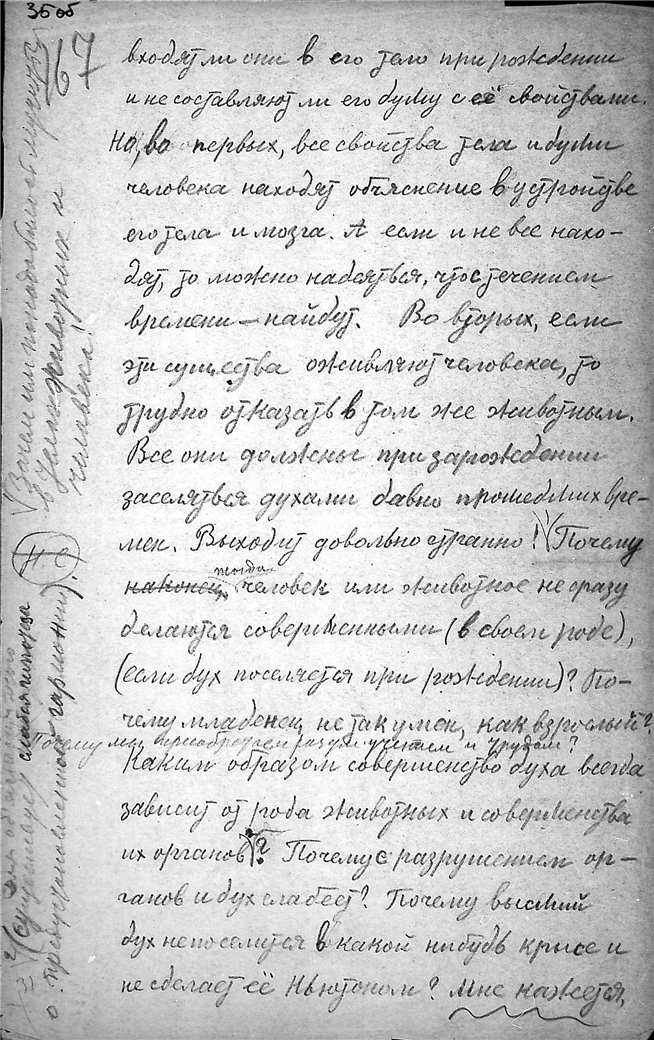 36 об
67
входят ли они в его тело при рождении
и не составляют ли его душу с её свойствами.
Но, во первых, все свойства тела и души
человека находят объяснение в устройстве
его тела и мозга. А если и не все нахо-
дят, то можно надеяться, что с течением
времени — найдут. Во вторых, если
эти существа оживляют человека, то
трудно отказать в том же животным.
Все они должны при зарождении
заселяться духами давно прошедших вре-
мен. Выходит довольно странно! Почему
наконец, тогда человек или животное не сразу
делаются совершенными (в своем роде),
(если дух поселяется при рождении)? По-
чему младенец не так умен, как взрослый?
Почему мы приобретаем разум учением и трудом?
Каким образом совершенство духа всегда
зависит от рода животных и совершенства
их органов? Почему с разрушением ор-
ганов и дух слабеет? Почему высший
дух не поселится в какой нибудь крысе и
не сделает её Ньютоном? Мне кажется,
Зачем им понадобилось мучиться
в телах животных и
человека!
слабая теория
о предустановленной гармонии).